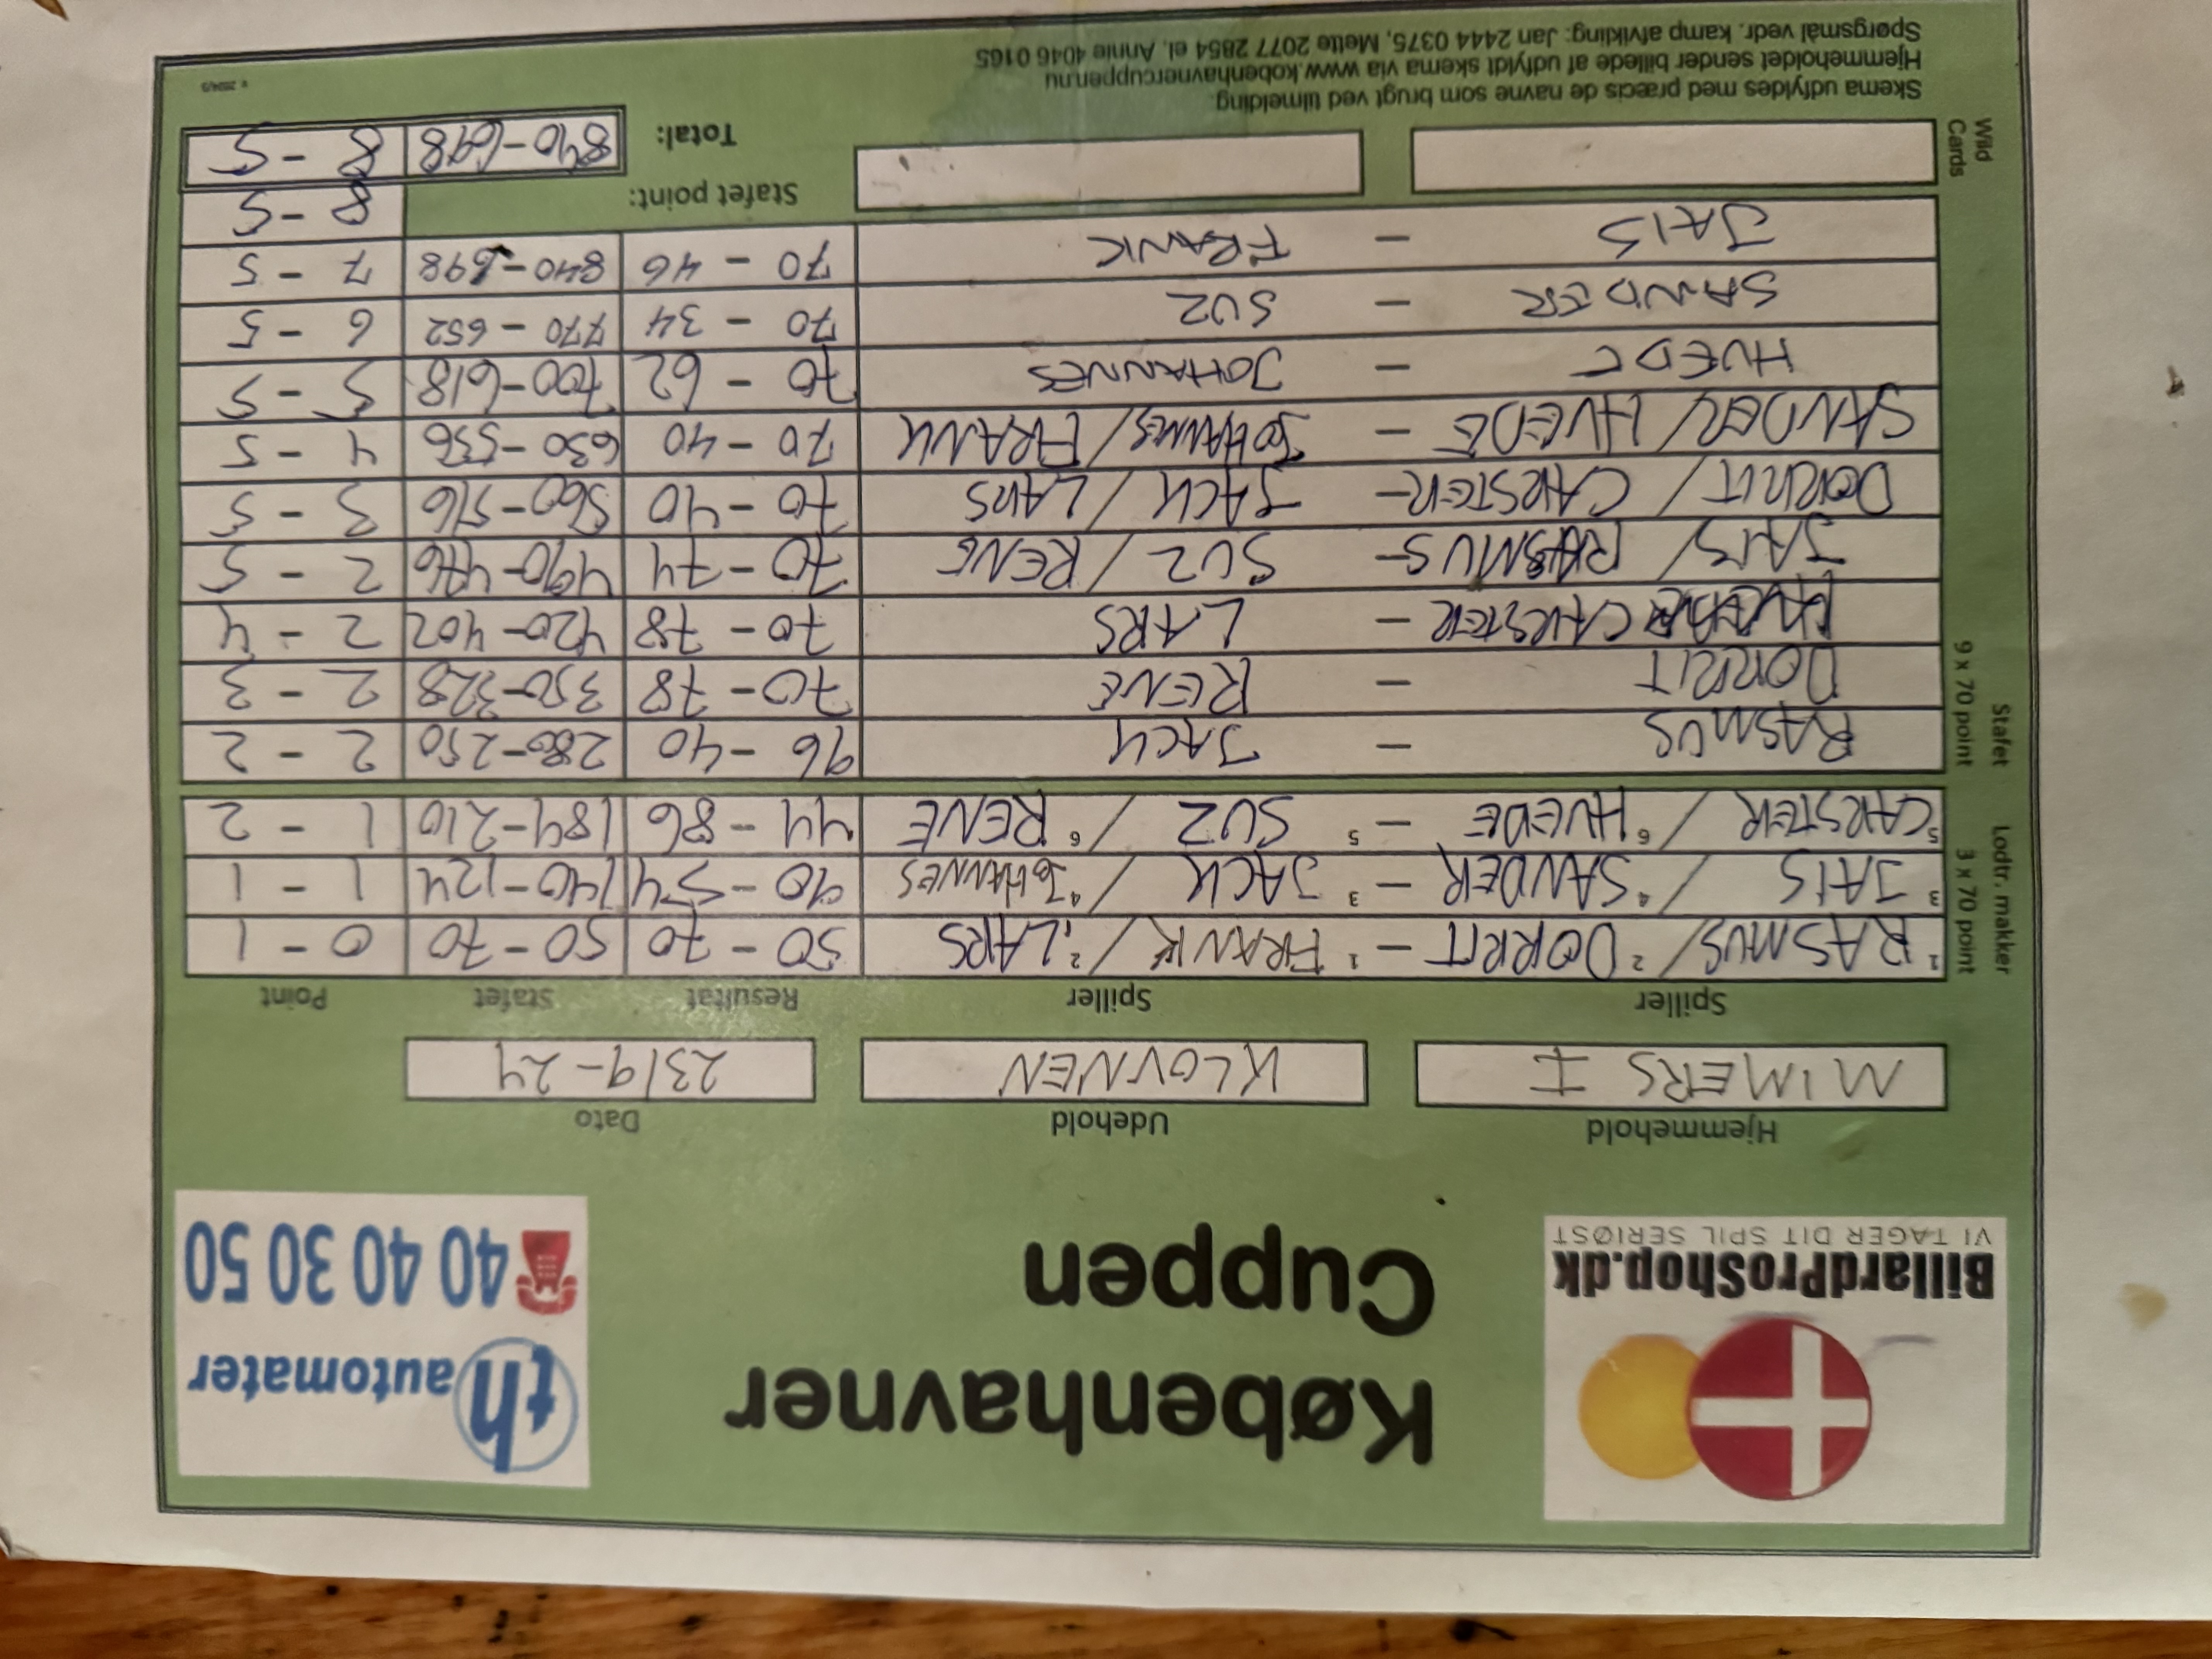 BillardProShop.dk
VI TAGER DIT SPIL SERIØST
Københavner
Cuppen
th automater
40 40 30 50
Hjemmehold Udehold Dato
MIMERS I KLOVNEN 23/9-24
Spiller Spiller Resultat Stafet Point
Lodtr. makker
3 x 70 point
1 RASMUS / 2 DORRIT - 1 FRANK / 2 LARS 50 - 70 50 - 70 0 - 1
3 JAIS / 4 SANDER - 3 JACK / 4 JOHANNES 90 - 54 140 - 124 1 - 1
5 CARSTEN / 6 HVEDE - 5 SUZ / 6 RENE 44 - 86 184 - 210 1 - 2
Stafet
9 x 70 point
RASMUS - JACK 96 - 40 280 - 250 2 - 2
DORRIT - RENE 70 - 78 350 - 328 2 - 3
CARSTEN - LARS 70 - 78 420 - 402 2 - 4
JAIS / RASMUS - SUZ / RENE 70 - 74 490 - 476 2 - 5
DORRIT / CARSTEN - JACK / LARS 70 - 40 560 - 516 3 - 5
SANDER / HVEDE - JOHANNES / FRANK 70 - 40 630 - 556 4 - 5
HVEDE - JOHANNES 70 - 62 700 - 618 5 - 5
SANDER - SUZ 70 - 34 770 - 652 6 - 5
JAIS - FRANK 70 - 46 840 - 698 7 - 5
Stafet point: 8 - 5
Wild
Cards
Total: 840 - 698 8 - 5
Skema udfyldes med præcis de navne som brugt ved tilmelding.
Hjemmeholdet sender billede af udfyldt skema via www.kobenhavnercuppen.nu
Spørgsmål vedr. kamp afvikling: Jan 2444 0375, Mette 2077 2854 el. Annie 4046 0165
v. 2024/5